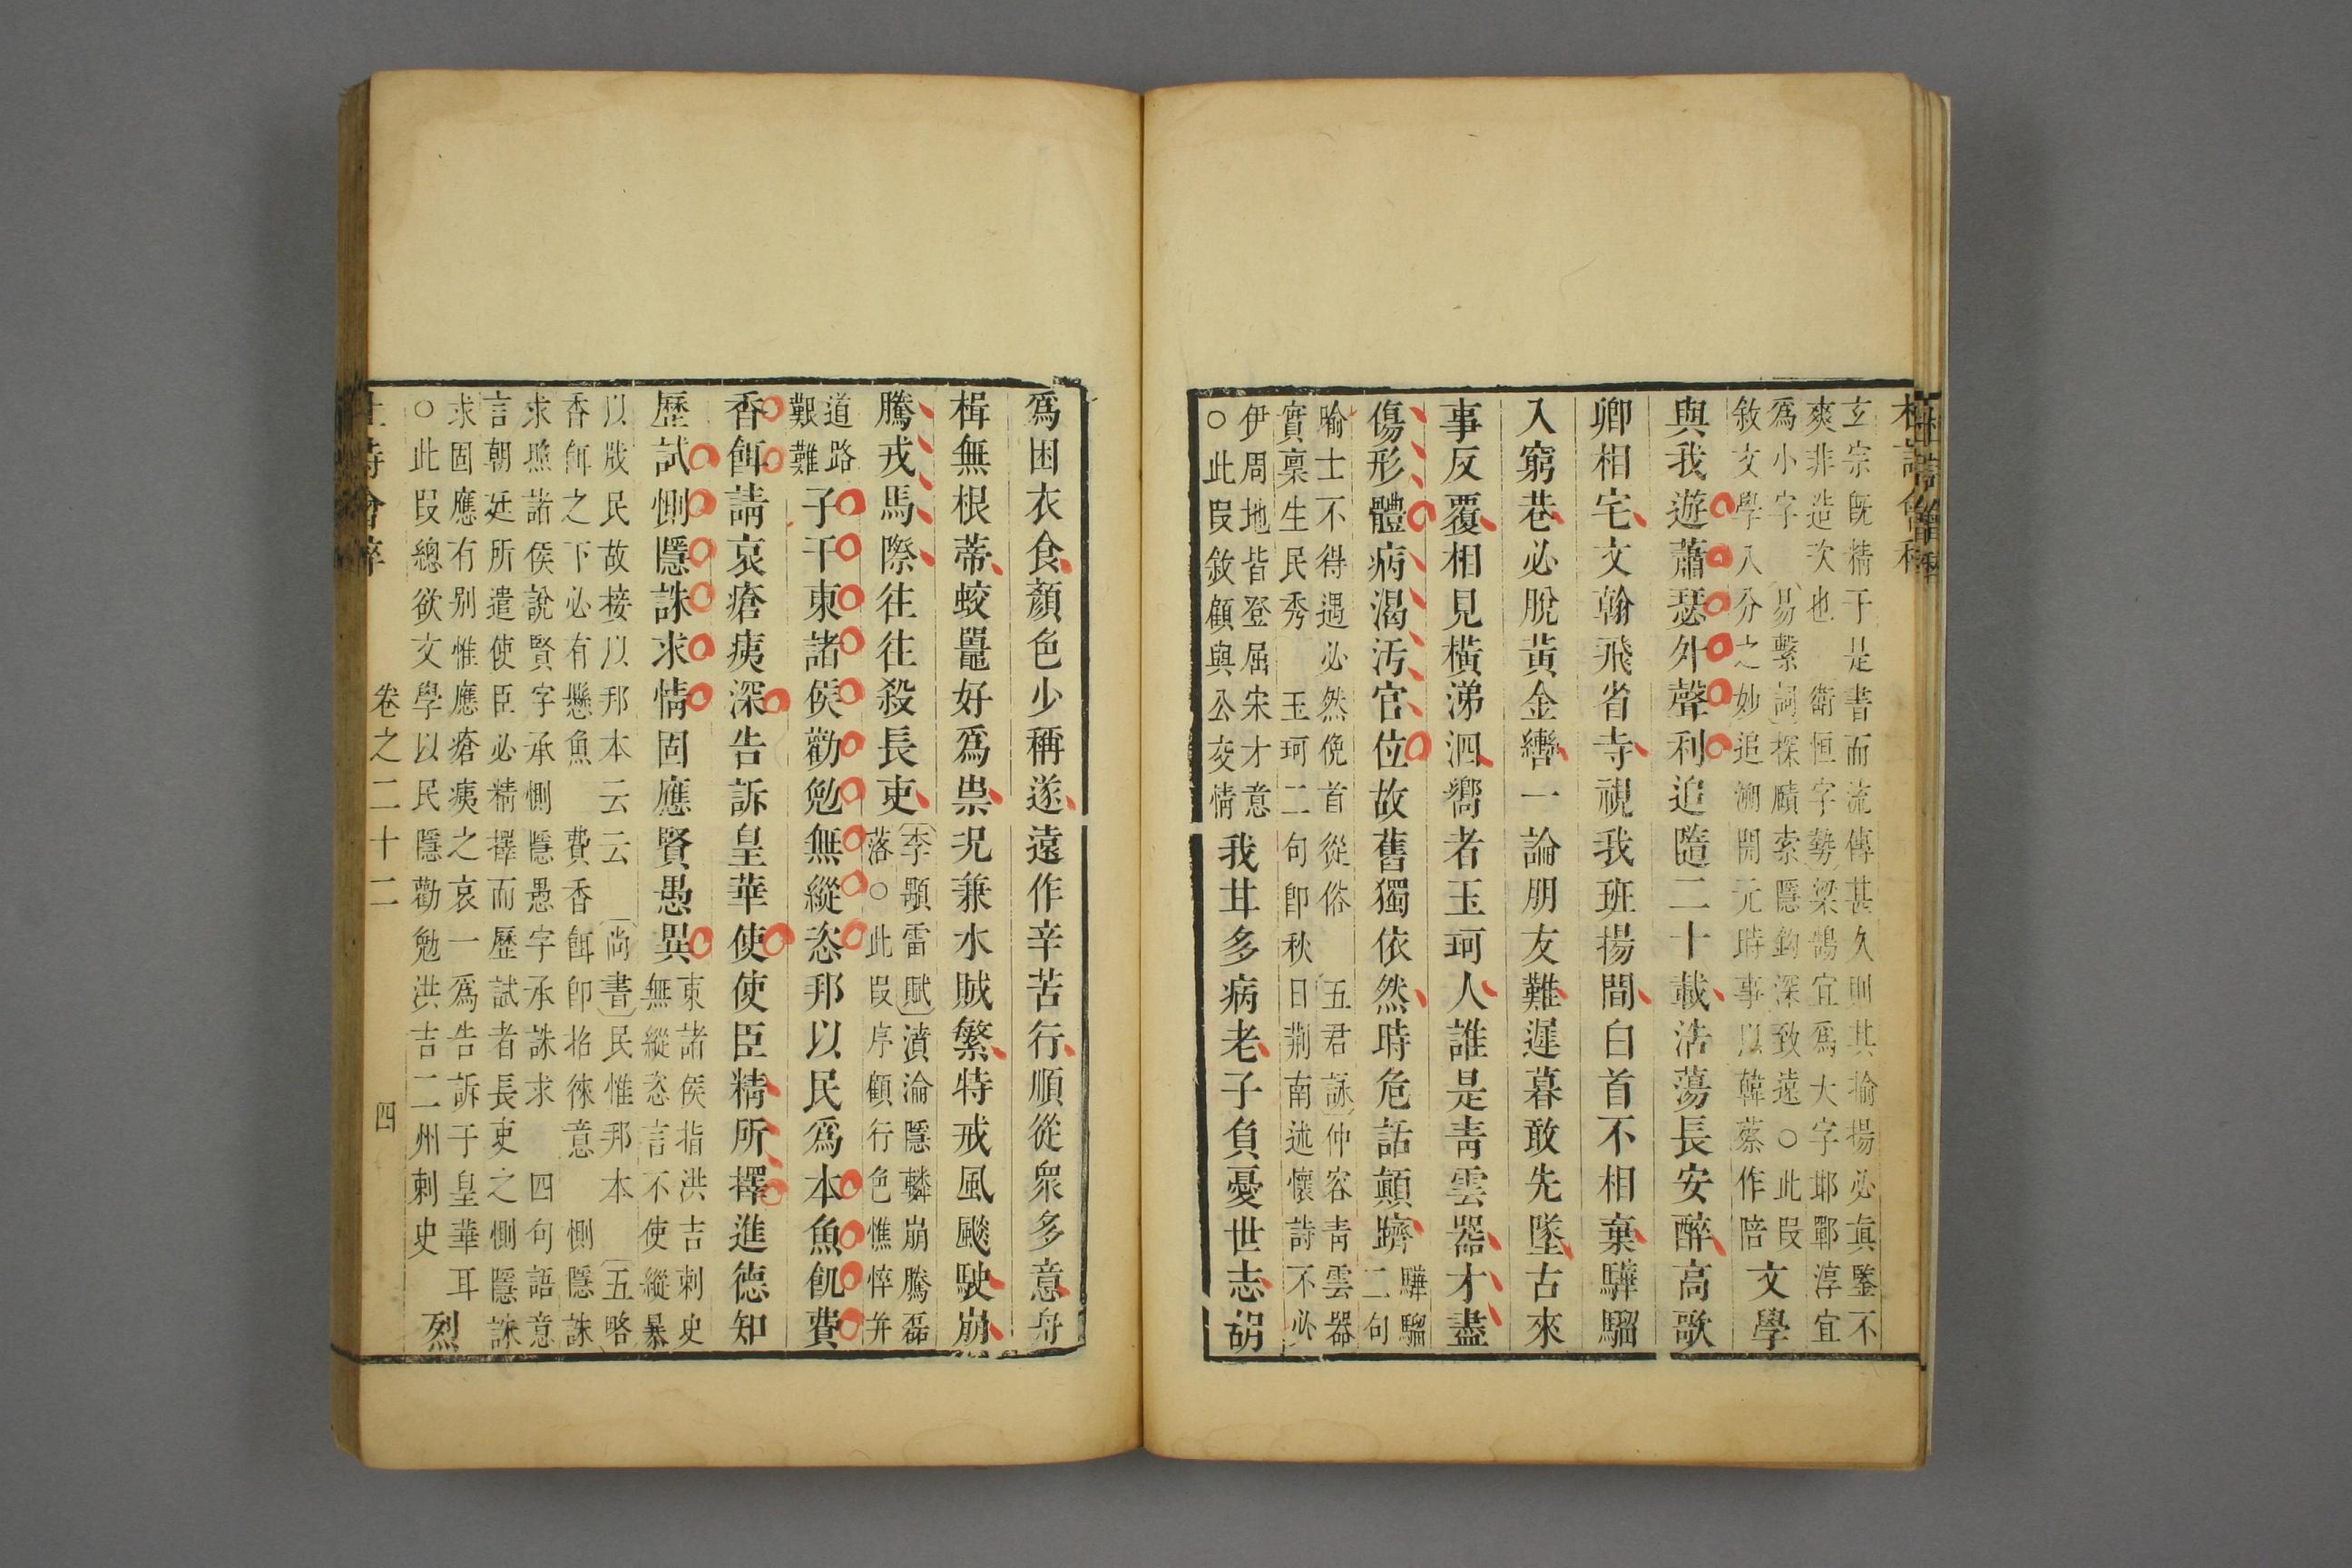 玄宗旣精于是書而流傳甚久則其揄揚必真鑒不
爽非造次也 衛恒字勢梁鵠宜爲大字邯鄲淳宜
爲小字 易繫詞探賾索隱鈎深致遠○此叚
敘文學八分之妙追溯開元時事以韓蔡作陪
文學
與我遊蕭瑟外聲利追隨二十載浩蕩長安醉高歌
卿相宅文翰飛省寺視我班揚間白首不相棄驊騮
入窮巷必脫黃金轡一論朋友難遲暮敢先墜古來
事反覆相見橫涕泗嚮者玉珂人誰是青雲器才盡
傷形體病渴汚官位故舊獨依然時危話顛躋
驊騮
二句
喻士不得遇必然俛首從俗 五君詠仲容青雲器
實稟生民秀 玉珂二句卽秋日荆南述懷詩不必
伊周地皆登屈宋才意
○此叚敘顧與公交情
我甘多病老子負憂世志胡
爲困衣食顏色少稱遂遠作辛苦行順從衆多意舟
楫無根蒂蛟鼉好爲祟况兼水賊繁特戒風飈駛崩
騰戎馬際往往殺長吏
李顒雷賦濆淪隱轔崩騰磊
落○此叚序顧行色憔悴并
道路
艱難
子干東諸侯勸勉無縱恣邦以民爲本魚飢費
香餌請哀瘡痍深告訴皇華使使臣精所擇進德知
歷試惻隱誅求情固應賢愚異
東諸侯指洪吉刺史
無縱恣言不使縱暴
以戕民故接以邦本云云 尚書民惟邦本 五略
香餌之下必有懸魚 費香餌卽招徠意 惻隱誅
求照諸侯說賢字承惻隱愚字承誅求 四句語意
言朝廷所遣使臣必精擇而歷試者長吏之惻隱誅
求固應有别惟應瘡痍之哀一爲告訴于皇華耳
○此叚總欲文學以民隱勸勉洪吉二州刺史
烈
杜詩會稡
卷之二十二
四